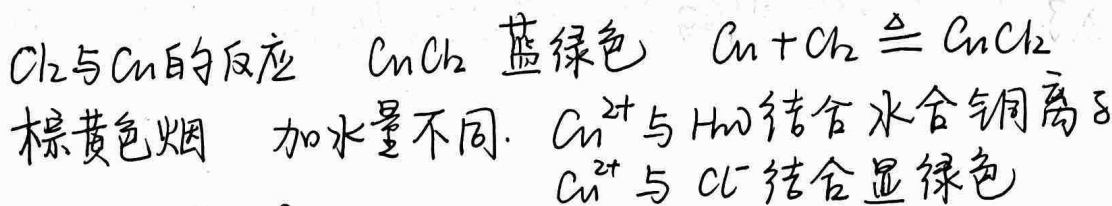 Cl₂与Cu的反应 CuCl₂ 蓝绿色 Cu + Cl₂ ≜ CuCl₂
棕黄色烟 加水量不同. Cu²⁺与H₂O结合水合铜离子
Cu²⁺与 Cl⁻结合显绿色